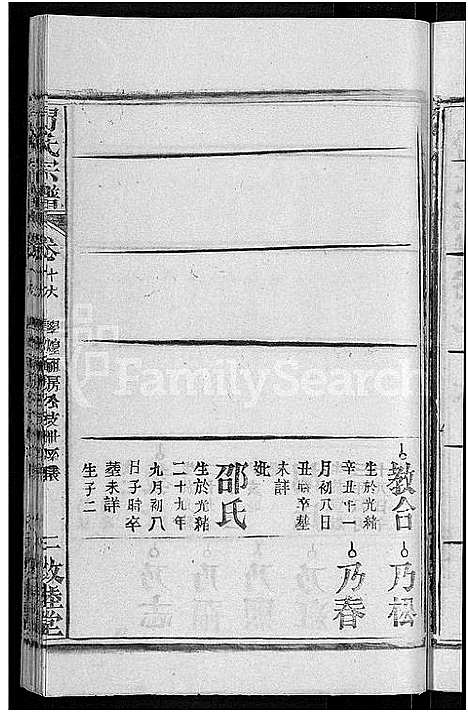 教台
生於光緒
辛丑十一
月初八日
丑時卒塟
未詳
妣
邵氏
生於光緒
二十九年
九月初八
日子時卒
塟未詳
生子二
乃松
乃春
氏宗譜
卷十六
二
敦睦堂
FamilySearch